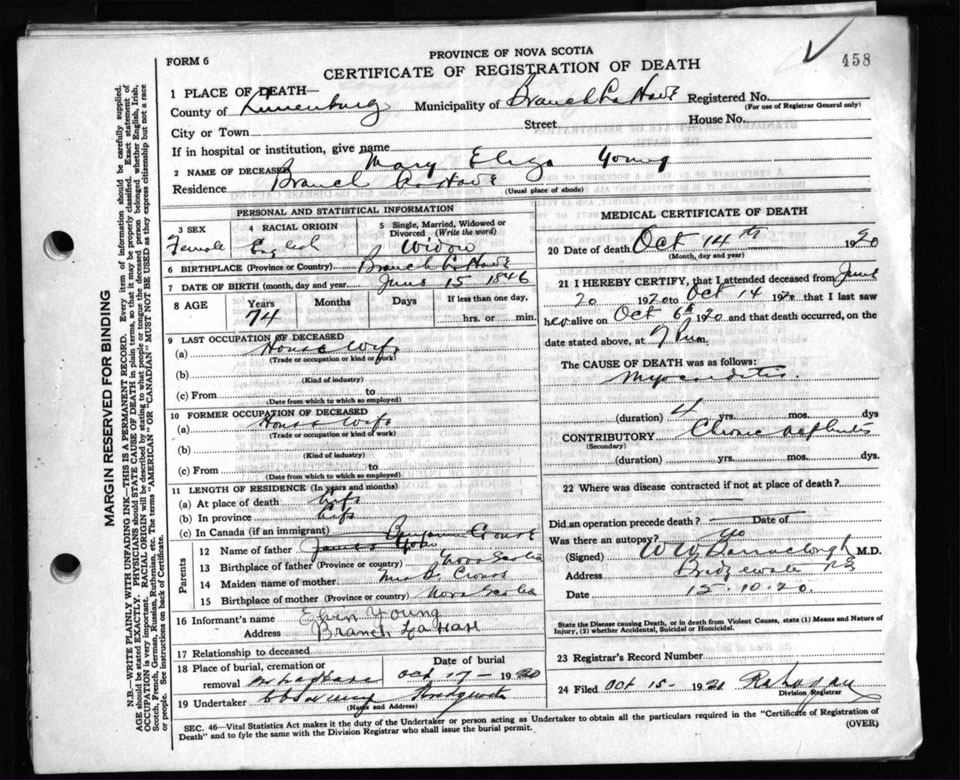 458
FORM 6
PROVINCE OF NOVA SCOTIA
CERTIFICATE OF REGISTRATION OF DEATH
1 PLACE OF DEATH—
County of Lunenburg Municipality of Branch LaHave Registered No.
(For use of Registrar General only)
City or Town Street House No.
If in hospital or institution, give name
2 NAME OF DECEASED Mary Eliza Young
Residence Branch LaHave
(Usual place of abode)
PERSONAL AND STATISTICAL INFORMATION
3 SEX 4 RACIAL ORIGIN 5 Single, Married, Widowed or Divorced (Write the word)
Female English Widow
6 BIRTHPLACE (Province or Country) Branch LaHave
7 DATE OF BIRTH (month, day and year) June 15 1846
8 AGE Years Months Days If less than one day,
74 hrs. or min.
9 LAST OCCUPATION OF DECEASED
(a) House Wife
(Trade or occupation or kind of work)
(b)
(Kind of industry)
(c) From to
(Date from which to which so employed)
10 FORMER OCCUPATION OF DECEASED
(a) House Wife
(Trade or occupation or kind of work)
(b)
(Kind of industry)
(c) From to
(Date from which to which so employed)
11 LENGTH OF RESIDENCE (In years and months)
(a) At place of death Life
(b) In province Life
(c) In Canada (if an immigrant)
Parents
Benjamin Crouse
12 Name of father James
13 Birthplace of father (Province or country) Nova Scotia
14 Maiden name of mother Mrs B. Crouse
15 Birthplace of mother (Province or country) Nova Scotia
16 Informant's name Young
Address Branch LaHave
17 Relationship to deceased
18 Place of burial, cremation or removal Date of burial
Oct 17 - 1920
19 Undertaker
(Name and Address)
MEDICAL CERTIFICATE OF DEATH
20 Date of death Oct 14th 1920
(Month, day and year)
21 I HEREBY CERTIFY, that I attended deceased from June
20 1920 to Oct 14 1920 that I last saw
her alive on Oct 6th 1920 and that death occurred, on the
date stated above, at 7 m.
The CAUSE OF DEATH was as follows:
Myocarditis.
(duration) 4 yrs. mos. dys
CONTRIBUTORY Chronic nephritis
(Secondary)
(duration) yrs. mos. dys.
22 Where was disease contracted if not at place of death?
Did an operation precede death? Date of
Was there an autopsy? No
(Signed) W W Barraclough M.D.
Address Bridgewater NS
Date 15.10.20.
State the Disease causing Death, or in death from Violent Causes, state (1) Means and Nature of Injury, (2) whether Accidental, Suicidal or Homicidal.
23 Registrar's Record Number
24 Filed Oct 15 - 192
Division Registrar
SEC. 46—Vital Statistics Act makes it the duty of the Undertaker or person acting as Undertaker to obtain all the particulars required in the "Certificate of Registration of
Death" and to fyle the same with the Division Registrar who shall issue the burial permit.
(OVER)
MARGIN RESERVED FOR BINDING
N.B.—WRITE PLAINLY WITH UNFADING INK—THIS IS A PERMANENT RECORD. Every item of information should be carefully supplied.
AGE should be stated EXACTLY. PHYSICIANS should STATE CAUSE OF DEATH in plain terms, so that it may be properly classified. Exact statement of
OCCUPATION is very important. RACIAL ORIGIN will be described by stating to what people or tongue the deceased person belonged whether English, Irish,
Scotch, French, German, Russian, Ruthenian, etc. The terms "AMERICAN" OR "CANADIAN" MUST NOT BE USED as they express citizenship but not a race
or people. See instructions on back of Certificate.